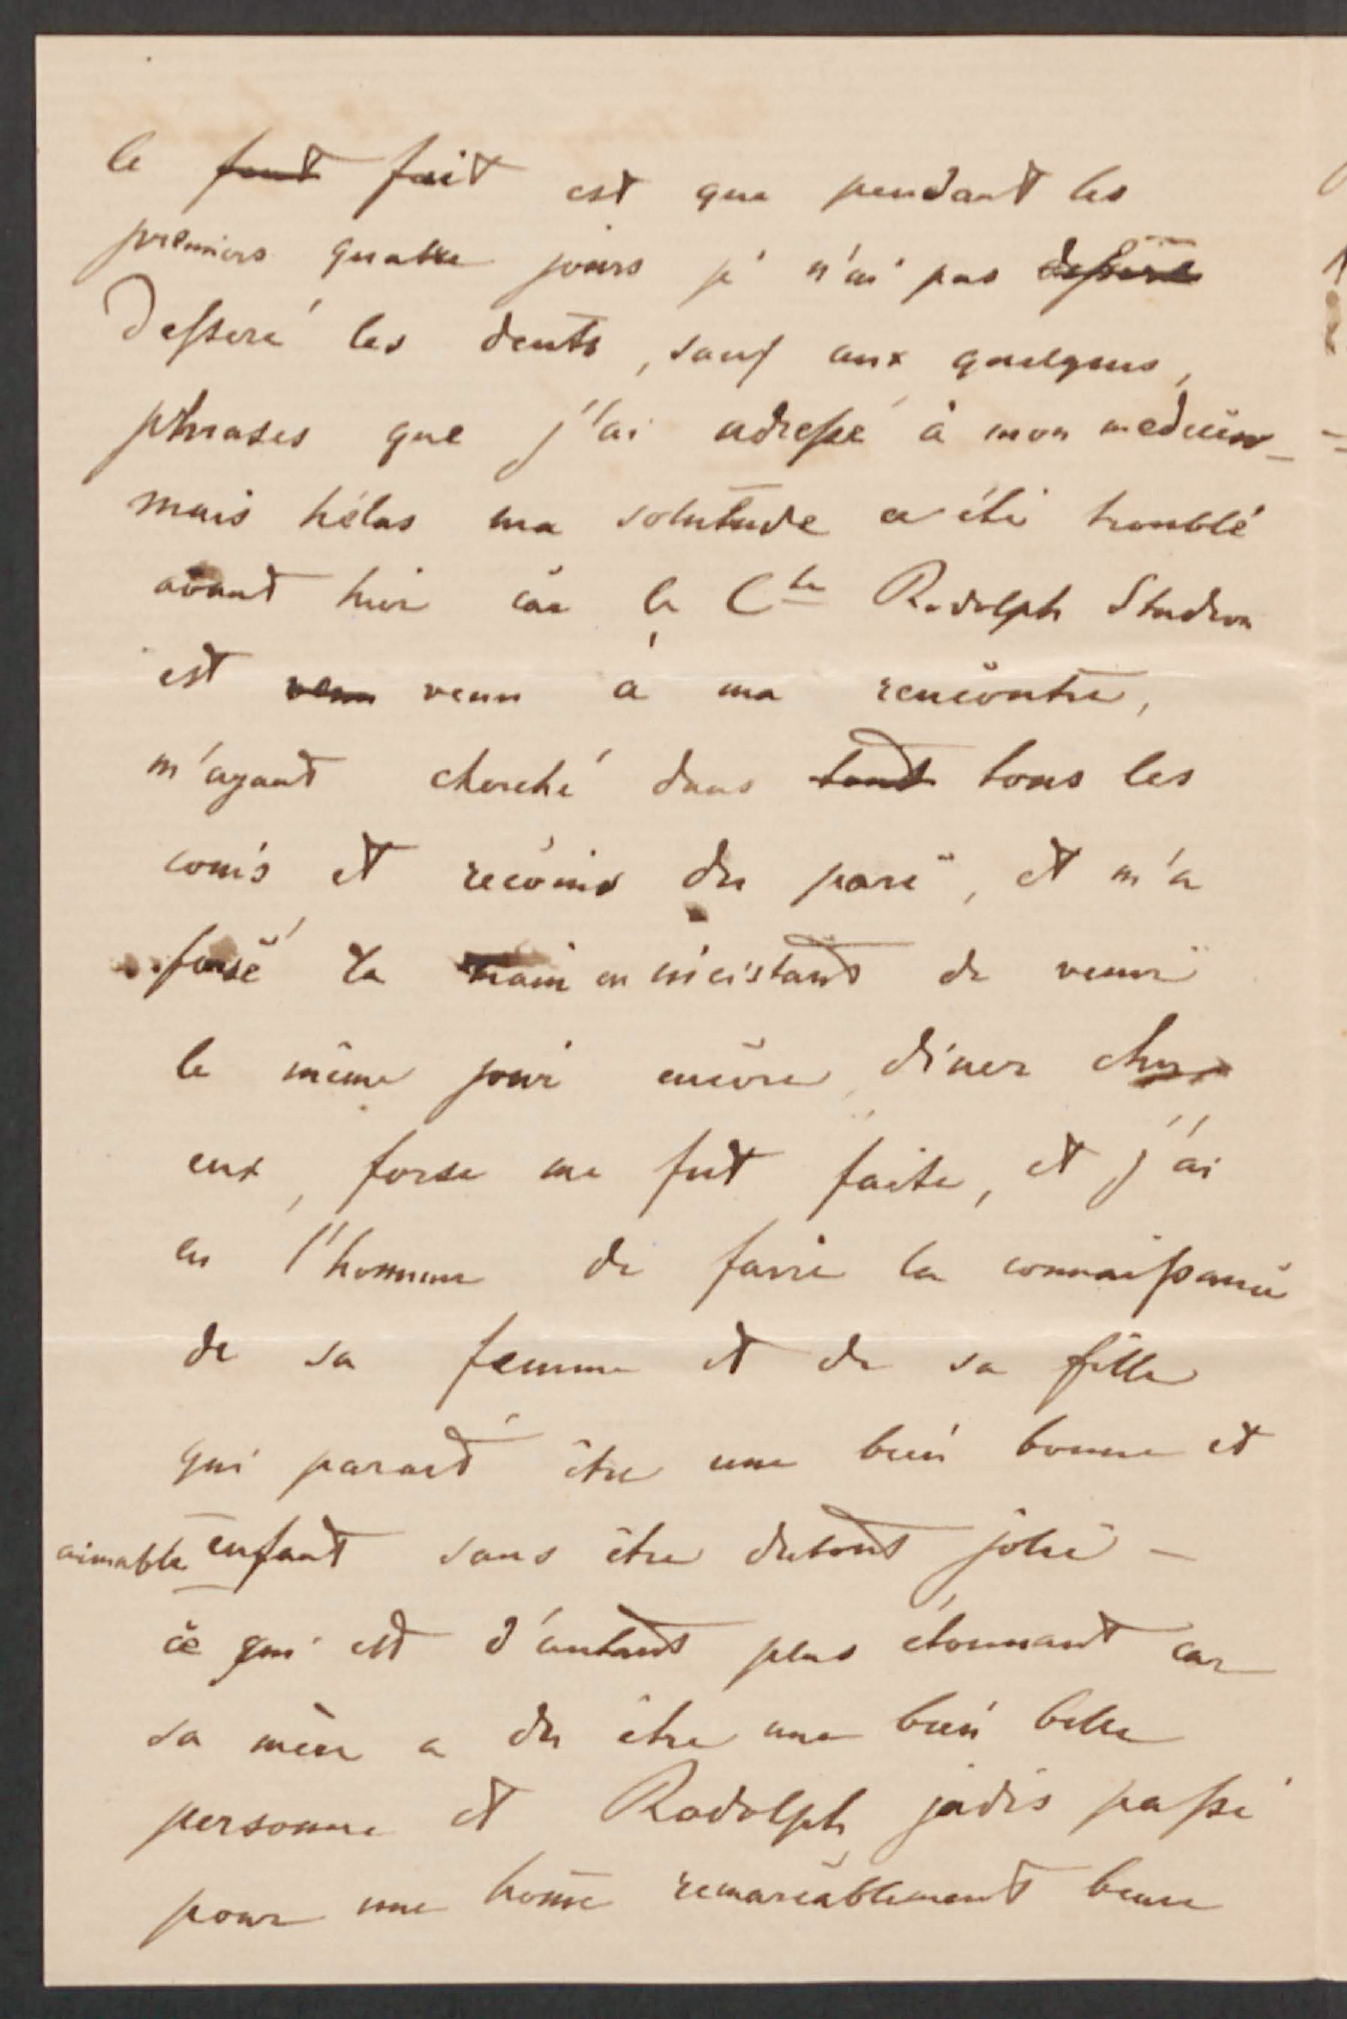 le faut fait est que pendant les
premiers quatre jours je n'ai pas desseré
desseré les dents, sauf aux quelques,
phrases que j'ai adressé à mon medecin –
mais hélas ma solutude a été troublé
avant hier car le Cte Rodolph Stadion
est venu venu à ma rencontre,
m'ayant cherché dans tout tous les
coins et recoins du parc, et m'a
forsé la main en incistant de venir
le même jour encore, diner chez
eux, forse me fut faite, et j'ai
eu l'honneur de faire la connaissance
de sa femme et de sa fille
qui parait être une bien bonne et
aimable enfant sans être dutout jolie –
ce qui est d'autant plus étonnant car
sa mère a du être une bien belle
personne et Rodolph jadis passé
pour une homme remarcablement beau